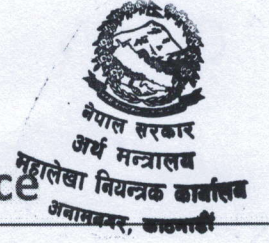 नेपाल सरकार
अर्थ मन्त्रालय
महालेखा नियन्त्रक कार्यालय
अनामनगर, काठमाडौं
ce